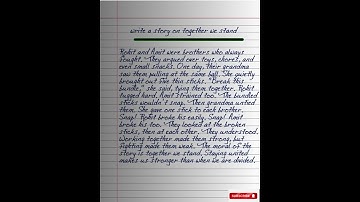 write a story on together we stand
Rohit and Amit were brothers who always
fought. They argued over toys, chores, and
even small snacks. One day, their grandma
saw them pulling at the same ball. She quietly
brought out five thin sticks. "Break this
bundle," she said, tying them together. Rohit
tugged hard, Amit strained too. The bundled
sticks wouldn't snap. Then grandma untied
them. She gave one stick to each brother.
Snap! Rohit broke his easily. Snap! Amit
broke his too. They looked at the broken
sticks, then at each other. They understood.
Working together made them strong, but
fighting made them weak. The moral of the
story is together we stand. Staying united
makes us stronger than when we are divided.
SUBSCRIBE